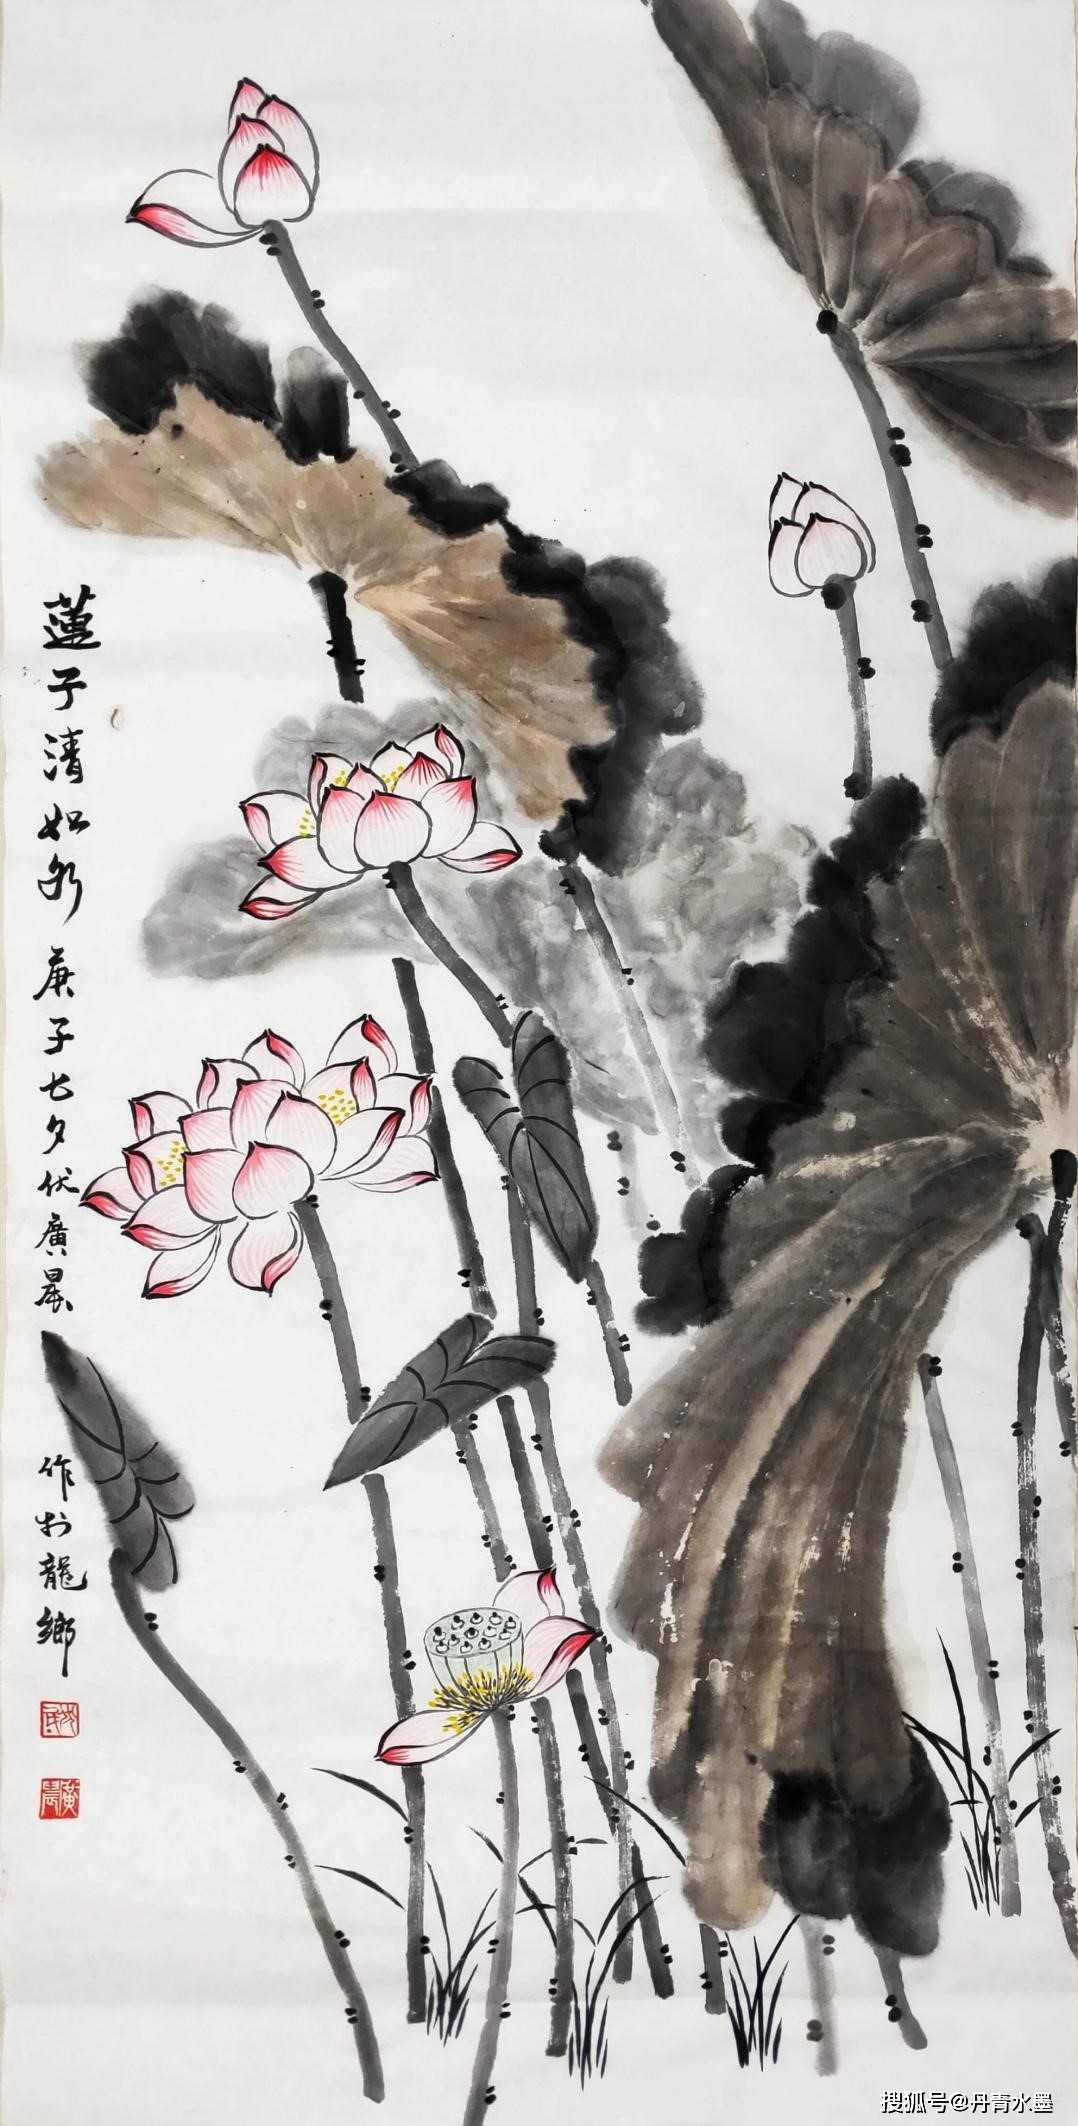 蓮子清如水 庚子七夕伏廣晨 作於龍鄉
廣晨
搜狐号@丹青水墨